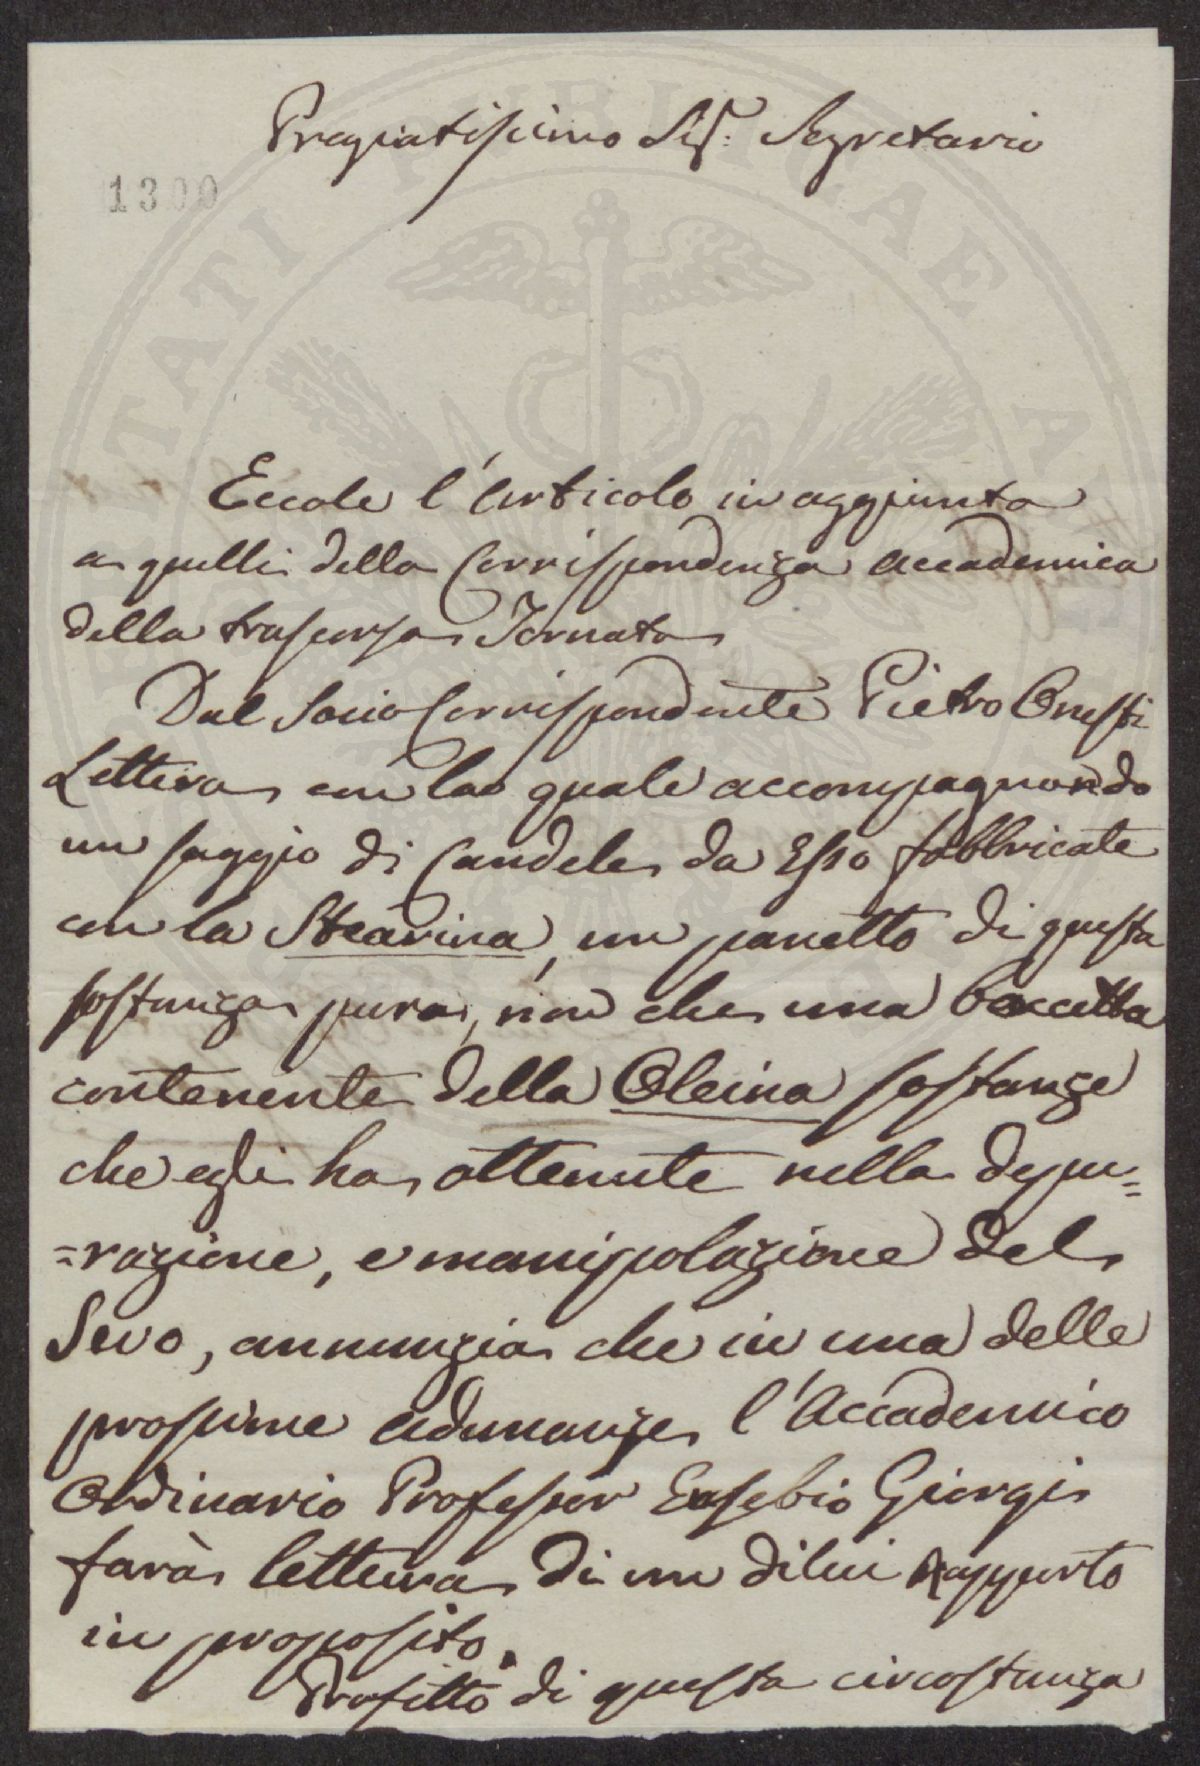 Pregiatissimo Sig.r Segretario
1300
Eccole l'Articolo in aggiunta
a quelli della Corrispondenza accademica
della trascorsa Tornata
Dal Socio Corrispondente Pietro Onesti
Lettera con la quale accompagnando
un saggio di Candele da Esso fabbricate
con la Stearina, un panetto di questa
sostanza pura, non che una boccetta
contenente della Oleina sostanze
che egli ha ottenute nella depu=
=razione, e manipolazione del
Sevo, annunzia che in una delle
prossime adunanze l'Accademico
Ordinario Professor Eusebio Giorgi
farà lettura di un dilui Rapporto
in proposito.
Profitto di questa circostanza